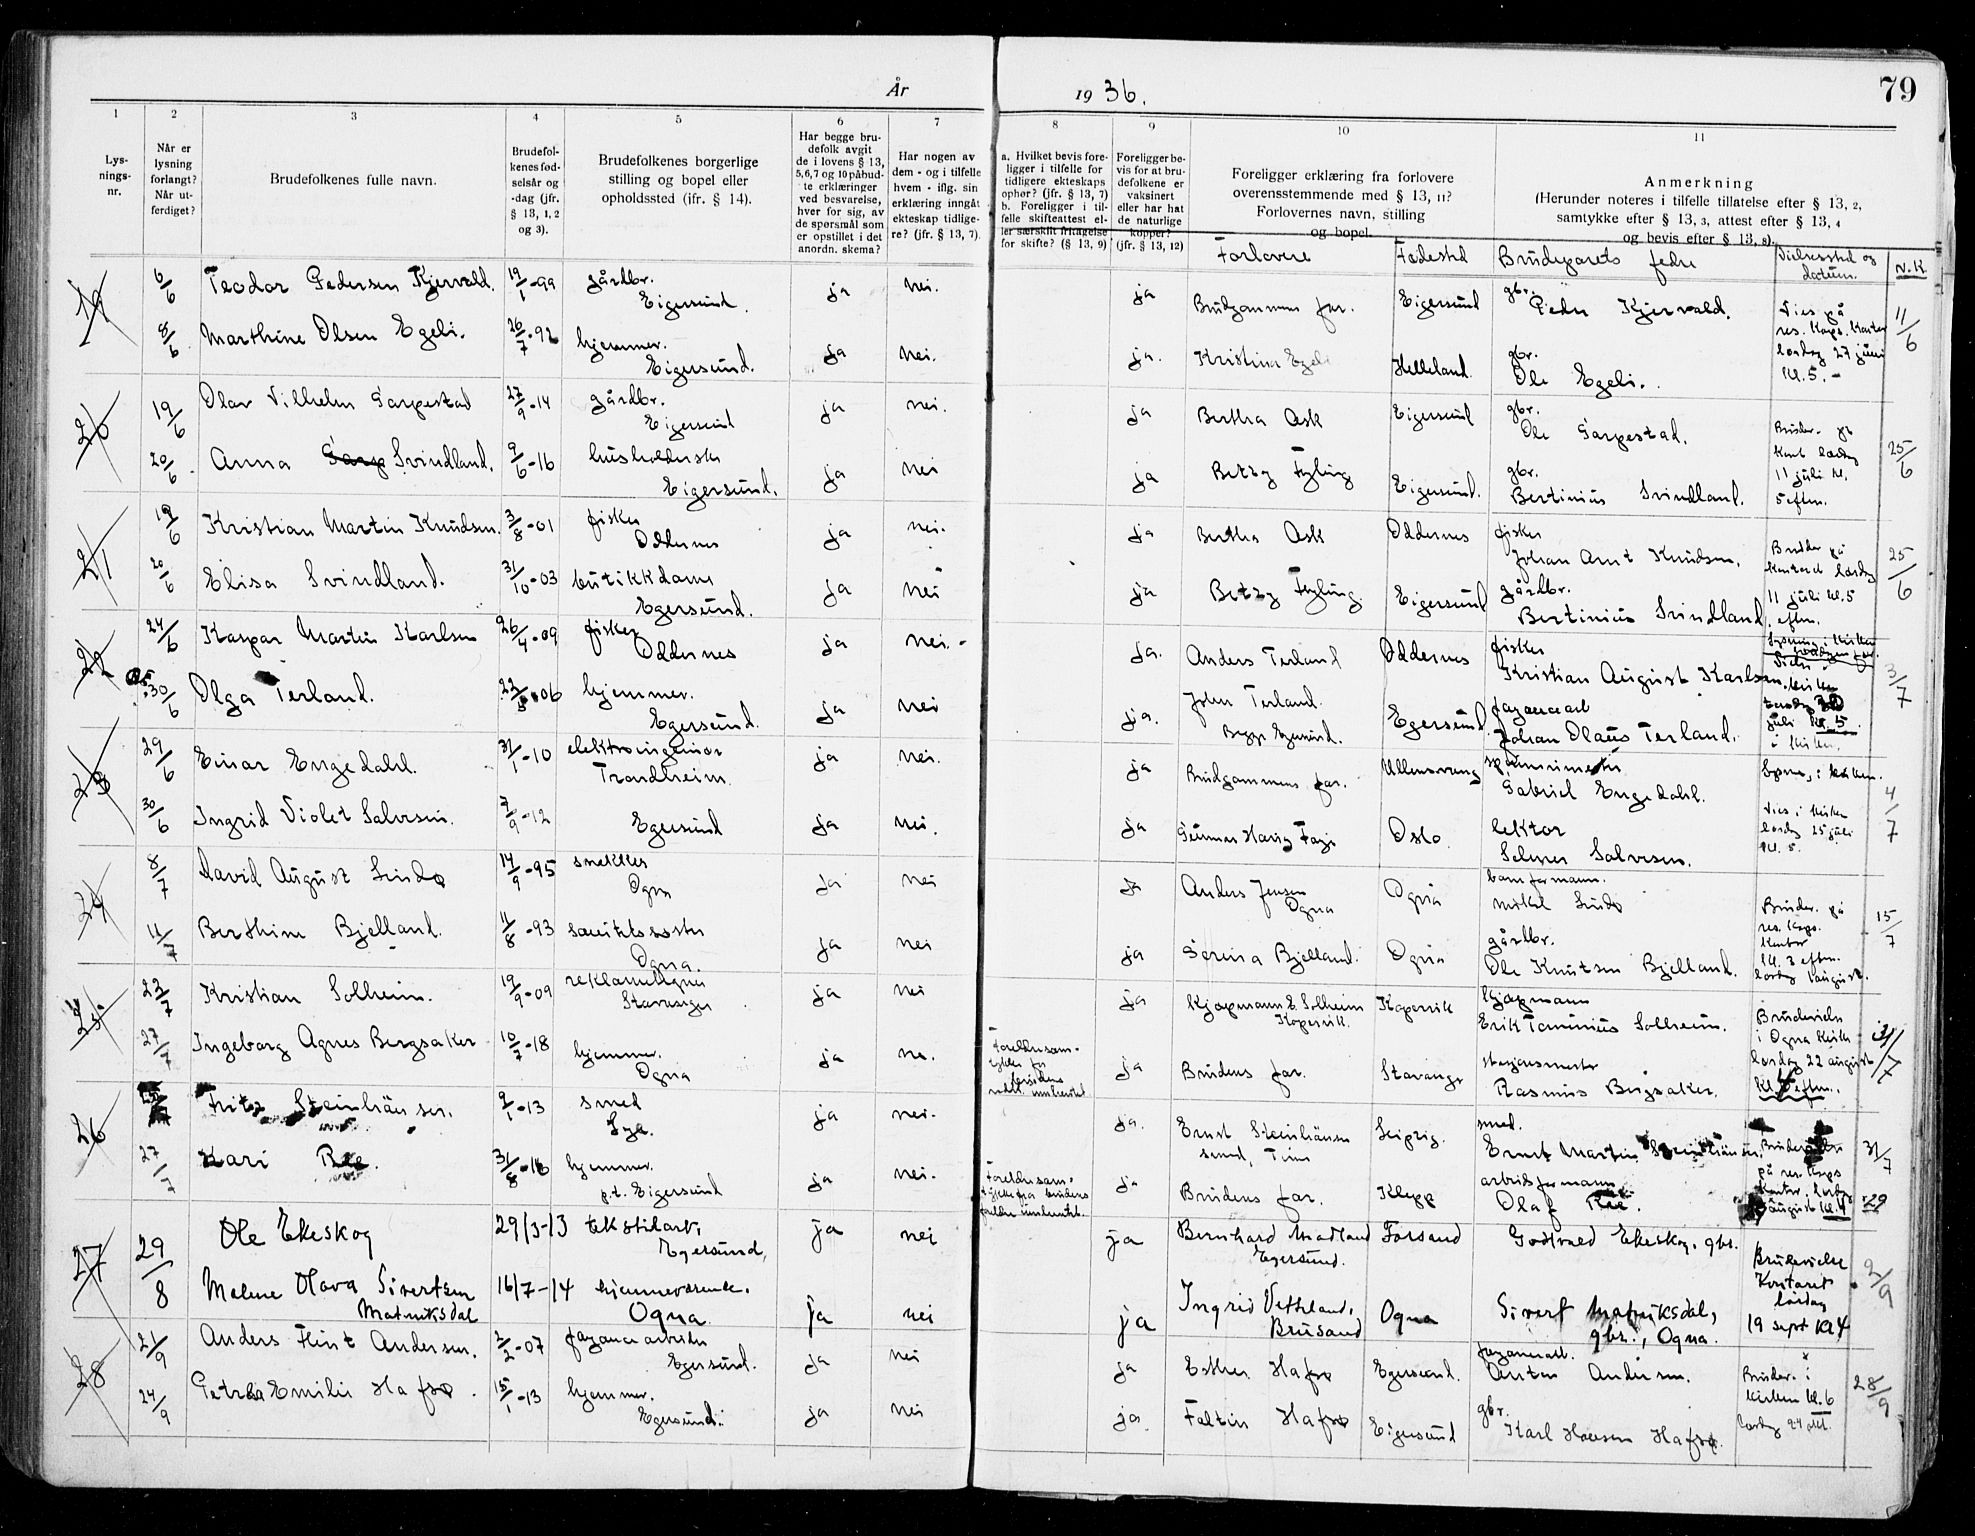 År
1936.
79
1
2
3
4
5
6
7
8
9
10
11
Lys-
nings-
nr.
Når er
lysning
forlangt?
Når ut-
ferdiget?
Brudefolkenes fulle navn.
Brudefol-
kenes fød-
selsår og
-dag (jfr.
§ 13, 1, 2
og 3).
Brudefolkenes borgerlige
stilling og bopel eller
opholdssted (ifr. § 14).
Har begge bru-
defolk avgit
de i lovens § 13,
5,6,7 og 10 påbud-
te erklæringer
ved besvarelse,
hver for sig, av
de spørsmål som
er opstillet i det
anordn. skema?
Har nogen av
dem - og i tilfelle
hvem - iflg. sin
erklæring inngåt
ekteskap tidlige-
re? (jfr. § 13, 7)
a. Hvilket bevis fore-
ligger i tilfelle for
tidligere ekteskaps
ophør? (jfr. § 13, 7)
b. Foreligger i til-
felle skifteattest el-
ler særskilt fritagelse
for skifte? (§ 13, 9)
Foreligger be-
vis for at bru-
defolkene er
vaksinert
eller har hat
de naturlige
kopper?
(jfr. § 13, 12)
Foreligger erklæring fra forlovere
overensstemmende med § 13, 11?
Forlovernes navn, stilling
og bopel.
Anmerkning
(Herunder noteres i tilfelle tillatelse efter § 13, 2,
samtykke efter § 13, 3, attest efter § 13, 4
og bevis efter § 13, 8).
Forlovere
Fødested
Brudeparets fedre
Vielsessted og
datum.
N.K
19
6/6
Teodor Pedersen Kjervald.
19/1-99
gårdbr.
Eigersund.
ja
nei.
ja
Brudgommens far.
Eigersund
gbr.
Peder Kjervald.
Vies på
res. kaps. kontor
lørdag 27 juni
kl. 5.-
11/6
8/6
Marthine Olsen Egeli.
26/7-92
hjemmev.
Eigersund.
ja
nei.
ja.
Kristina Egeli
Helleland
gbr.
Ole Egeli.
20
19/6
Olav Vilhelm Gaspestad
27/9-14
gårdbr.
Eigersund
ja
nei.
ja
Bertha Ask
Eigersund
gbr.
Ole Gaspestad.
Brudev. på
kont lørdag
11 juli kl.
5 eftm.
25/6
20/6
Anna Svindland.
9/6-16
Eigersund.
ja
nei
ja
Betzy Fyling
Eigersund.
gbr.
Bertinius Svindland.
21
19/6
Kristian Martin Knudsen.
3/8-01
fisker
Oddernes
ja
nei.
ja
Bertha Ask
Oddernes
fisker
Johan Arnt Knudsen.
Brudev på
kontoret lørdag
11 juli kl. 5
eftm.
25/6
20/6
Elisa Svindland.
31/10-03
butikkdame
Egersund.
ja
nei
ja
Betzy Fyling.
Eigersund
gårdbr.
Bertinius Svindland
22
24/6
Kaspar Martin Karlsen
26/4-09
fisker
Oddernes
ja
nei.-
ja.
Anders Terland
Oddernes
fisker
Kristian August Karlsen.
3/7
30/6
Olga Terland.
hjemmev.
Egersund.
ja
nei
ja.
John Terland.
Begge Egersund.
Egersund.
Johan Olaus Terland.
juli kl. 5.
i kirken.
23
29/6
Einar Engedahl.
31/1-10
elektroingeniør
Trondheim.
ja
nei.
ja
Brudgommens far.
Ullensvang
Gabriel Engedahl.
4/7
30/6
Ingrid Violet Salvesen.
7/9-12
Egersund
ja
nei.
ja
Oslo
lektor
Salvesen.
Vies i kirken
lørdag 25 juli
kl. 5.
24
8/7
David August Lindø
14/9-95
snekker
Ogna
ja
nei
ja
Anders Jensen
Ogna
Ogna
Mikal Lindø
Brudev. på
res. kaps.
kontor
kl. 3 eftm.
lørdag 1 august.
15/7
11/7
Berthine Bjelland.
11/8-93
Ogna.
ja
nei
ja
Serina Bjelland.
Ogna
gårdbr.
Ole Knutsen Bjelland.
25.
23/7
Kristian Solheim.
19/9-09
reklametegner
Stavanger
ja
nei
ja
Kjøpmann E. Solheim
Kopervik.
Kopervik
kjøpmann
Erik Tominius Solheim.
Brudevielse
i Ogna kirke
lørdag 22 august
kl. 4 eftm.
31/7
27/7
Ingeborg Agnes Bergsaker
10/7-18
hjemmev.
Ogna
ja
nei.
ja
Brudens far.
Stavanger
stasjonsmester
Rasmus Bergsaker.
26
Fritz Steinhäuser.
9/1-13
smed
ja
nei.
ja.
Ernst Steinhäuser
smed, Time
Leipzig.
smed.
Ernst Martin Steinhäuser.
31/7
27/7
Kari Ree.
31/8-16
hjemmev.
p.t. Eigersund
ja
nei.
ja
Brudens far.
Klepp
arbeidsformann
Olaf Ree.
på res. kaps
kontor, lørdag
29
august kl. 4
27
29/8
Ole Ekeskog
29/3-13
tekstilarb,
Egersund,
ja
nei
ja
Bernhard Madland
Egersund.
Forsand
Godtvard Ekeskog, gbr.
Brudevielse
Kontoret
lørdag
19 sept kl 4
2/9
Malene Olava Sivertsen
Matningsdal
16/7-14
hjemmeværende.
Ogna.
ja
nei
ja
Ingrid Vetteland,
Brusand
Ogna
Sivert Matningsdal,
gbr., Ogna.
28
21/9
Anders Flint Andersen.
2/2-07
fayancearbeider
Egersund.
ja
nei
ja
Esther Hafsø
Egersund.
fayancearb.
Anton Andersen.
Brudev. i
kirken kl. 6
lørdag 24 okt.
28/9
24/9
Petrea Emilie Hafsø.
15/1-13
hjemmev.
Egersund.
ja
nei
ja.
Faltin Hafsø
Eigersund
gbr.
Karl Hansen Hafsø.